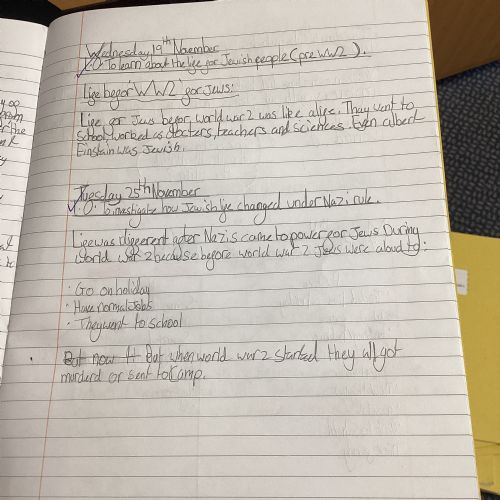 Wednesday 19th November
L.O. To learn about the life for Jewish people (pre WW2).
Life befor 'WW2' for Jews:
Life for Jews befor world war 2 was like a life. They went to
School, worked as docters, teachers and sciences. Even albert
Einstein was Jewish.
Tuesday 25th November
L.O. To investigate how Jewish life changed under Nazi rule.
Life was different after Nazis came to power for Jews During
world war 2 because before world war 2 Jews were aloud to:
· Go on holiday
· Have normal Jobs
· They went to school
But now it But when world war 2 started they all got
murderd or sent to Camp.